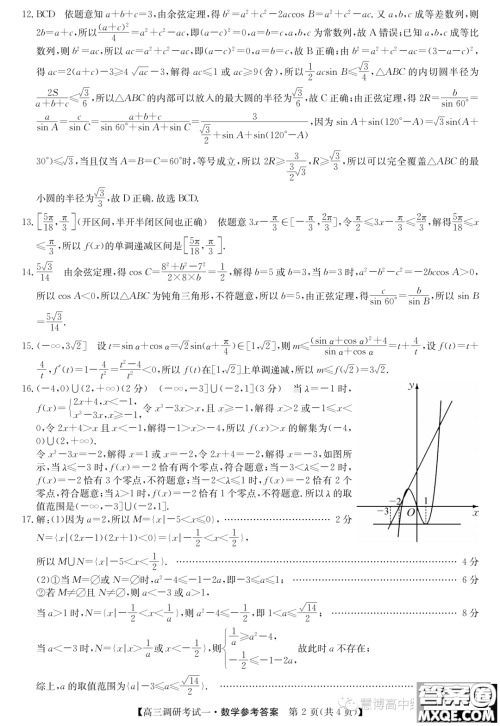 12. BCD 依题意知 a+b+c=3,由余弦定理,得 b²=a²+c²-2accos B=a²+c²-ac,又 a,b,c 成等差数列,则
2b=a+c,所以 (a+c)²/4=a²+c²-ac,即(a-c)²=0,a=b=c,a,b,c 为常数列,故 A 错误;已知 a,b,c 成等比
数列,则 b²=ac,所以 ac=a²+c²-ac,即(a-c)²=0,a=b=c,故 B 正确;由 b²=a²+c²-ac=(3-a-c)²,
得 ac=2(a+c)-3≥4√ac-3,解得 ac≤1 或 ac≥9(舍),所以 1/2 acsin B≤√3/4,△ABC 的内切圆半径为
2S/(a+b+c)≤√3/6,所以△ABC 的内部可以放入的最大圆的半径为√3/6,故 C 正确;由正弦定理,得 2R=b/sin 60°=
a/sin A=c/sin C=(a+b+c)/(sin 60°+sin A+sin C)=3/(√3/2+sin A+sin(120°-A)),因为 sin A+sin(120°-A)=√3sin(A+
30°)≤√3,当且仅当 A=B=C=60°时,等号成立,所以 2R≥3/(3/2 √3),R≥√3/3,所以可以完全覆盖△ABC 的最
小圆的半径为√3/3,故 D 正确.故选 BCD.
13. [5π/18, π/3](开区间,半开半闭区间也正确) 依题意 3x-π/3∈[-π/3, 2π/3],令 π/2≤3x-π/3≤2π/3,解得 5π/18≤x
≤π/3,所以 f(x)的单调递减区间是[5π/18, π/3].
14. 5√3/14 由余弦定理,得 cos C=(8²+b²-7²)/(2×8×b)=1/2,解得 b=5 或 b=3,当 b=3 时,a²-b²-c²=-2bccos A>0,
所以 cos A<0,所以△ABC 为钝角三角形,不符题意,所以 b=5,由正弦定理,得 c/sin 60°=b/sin B,所以 sin B
=5√3/14.
15. (-∞,3√2] 设 t=sin α+cos α=√2sin(α+π/4)∈[1,√2],则 m≤((sin α+cos α)²+4)/(sin α+cos α)=t+4/t,设 f(t)=t+
4/t,f′(t)=1-4/t²=(t²-4)/t²<0,所以 f(t)在[1,√2]上单调递减,所以 m≤f(√2)=3√2.
16. (-4,0)∪(2,+∞)(2 分) (-∞,-3]∪(-2,1](3 分) 当 λ=-1 时,
f(x)={2x+4,x<-1, x³-3x,x≥-1, 令 x³-3x>x,且 x≥-1,解得 x>2 或-1≤x<
0,令 2x+4>x 且 x<-1,解得-1>x>-4,所以 f(x)>x 的解集为(-4,
0)∪(2,+∞).
令 x³-3x=-2,解得 x=1 或 x=-2,令 2x+4=-2,解得 x=-3,如图所
示,当 λ≤-3 时,f(x)=-2 恰有两个零点,符合题意;当-3<λ≤-2 时,
f(x)=-2 恰有 3 个零点,不符题意;当-2<λ≤1 时,f(x)=-2 恰有 2 个
零点,符合题意;当 λ>1 时,f(x)=-2 恰有 1 个零点,不符题意.所以 λ 的取
值范围是(-∞,-3]∪(-2,1].
y
-3 -2 O 1 x
17. 解:(1)因为 a=2,所以 M={x|-5<x≤0}, 2 分
N={x|(2x-1)(2x+1)<0}={x|-1/2<x<1/2},
所以 M∪N={x|-5<x<1/2}. 4 分
(2)①当 M=∅或 N=∅时,a²-4≤-1-2a,即-3≤a≤1; 6 分
②若 M≠∅且 N≠∅,则 a<-3 或 a>1,
当 a>1 时,N={x|-1/2<x<1/a},则 a²-4≤-1/2,即 1<a≤√14/2; 8 分
当 a<-3 时,N={x|x>1/a 或 x<-1/2},则{1/a≥a²-4, -1/2≤-1-2a, 故此时 a 不存在;
综上,a 的取值范围为{a|-3≤a≤√14/2}.
【高三调研考试一·数学参考答案 第 2 页(共 4 页)】
慧博高中
答案圈
MXQE.COM